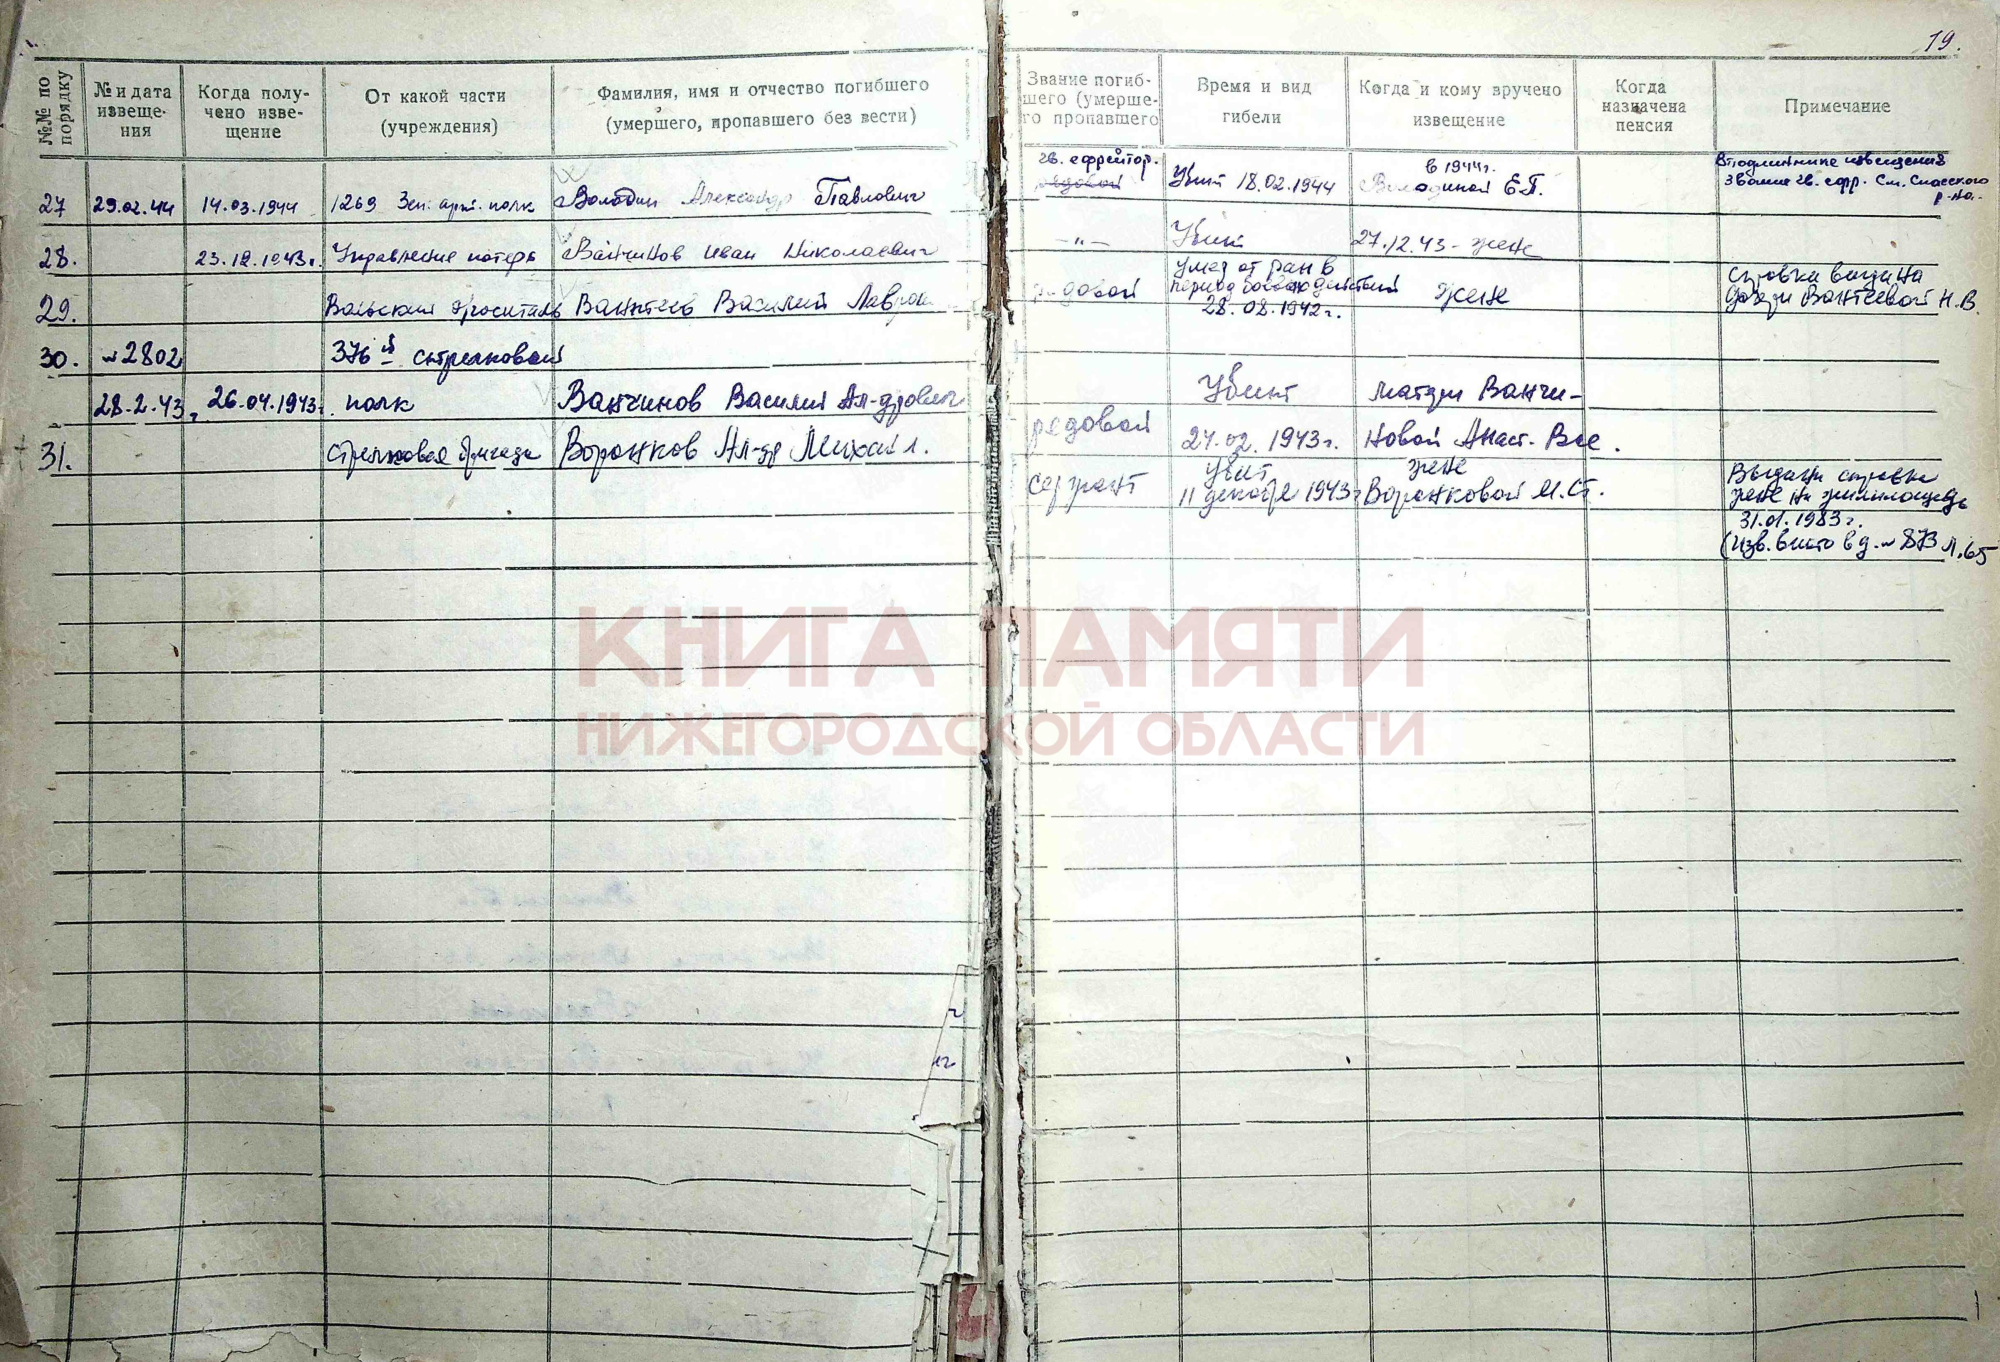 19.
№№ по порядку
№ и дата извеще-ния
Когда полу-чено изве-щение
От какой части (учреждения)
Фамилия, имя и отчество погибшего (умершего, пропавшего без вести)
Звание погиб-шего (умерше-го пропавшего
Время и вид гибели
Когда и кому вручено извещение
Когда назначена пенсия
Примечание
27 29.02.44 14.03.1944 1269 Зен. арт. полк Володин Александр Павлович
гв. ефрейтор. рядовой Убит 18.02.1944 в 1944г. Володиной Е.П.
В подлиннике извещения
звание гв. ефр. См. Спасского
р-на.
28. 23.12.1943г. Управление потерь Ванчинов Иван Николаевич
—"— Убит 27.12.43 - жене
29. Вольский госпиталь Вантеев Василий
рядовой умер от ран в
период боевых действий
28.08.1942г.
жене
Справка выдана
дочери Вантеевой Н.В.
30. №2802 376й стрелковой
28.2.43г. 26.04.1943г. полк Ванчинов Василий Ал-дрович
рядовой Убит
24.02.1943г.
матери Ванчи-
новой Анаст. Вас.
31. Стрелковая бригада Воронков Ал-др Михайл.
сержант убит
11 декабря 1943г
жене
Воронковой М.Ст.
Выдана справка
жене на жилплощадь
31.01.1983г.
(Изв. вшито в д. №873 л.65
КНИГА ПАМЯТИ
НИЖЕГОРОДСКОЙ ОБЛАСТИ